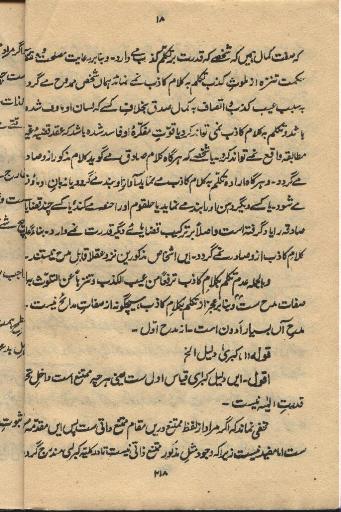 ۱۸
کہ صفت کمال ہمیں کہ شخصے کہ قدرت بر تکلم کذب می دارد۔ و بنا بر رعایت مصلحت و مقتضائے
حکمت تنزہ از لوث کذب تکلم بہ کلام کاذب نمے نماید ہماں شخص ممدوح مے گردد
بہ سبب عیب کذب و اتصاف بکمال صدق بخلاف کسے کہ لسان او ماؤف شدہ
باشد و تکلم بہ کلام کاذب نمی تواند کرد یا قوت مفکرہ او فاسد شدہ باشد کہ عقد قضیہ غیر
مطابقہ واقع نمے تواند کرد۔ یا شخصے کہ ہرگاہ کلام صادق مے گوید کلام مذکور از و صادر
مے گردد۔ و ہرگاہ ارادہ تکلم بہ کلام کاذب مے نماید آواز او بند مے گردد یا زبان او ماؤف
مے شود۔ یا کسے دیگر دہن او را بند مے نماید یا حلقوم او را خفہ مے کند یا کسے چند قضایا
صادقہ را یاد گرفتہ است و اصلا بر ترکیب قضایائے دیگر قدرت نمے دارد۔ بناءً علیہ
کلام کاذب از و صادر نمے گردد۔ ایں اشخاص مذکورین نزد عقلا قابل مدح نیستند۔
وبالجملہ عدم تکلم بکلام کاذب ترفعاً عن عیب الکذب و تنزہاً عن التلوث بہ از
صفات مدح ست و بنا بر عجز از تکلم بکلام کاذب ہیچ گونہ از صفات مدائح نیست۔ یا
مدح آں بسیار ادون است۔ از مدح اول۔
قولہ (۱) کبریٰ دلیل الخ
اقول۔ ایں دلیل کبریٰ قیاس اول ست یعنی ہر چہ ممتنع است داخل تحت
قدرت الہیہ نیست۔
مخفی نماند کہ اگر مراد از لفظ ممتنع دریں مقام ممتنع ذاتی ست پس ایں مقدمہ مسلم
ست اما مفید نیست زیرا کہ وجود مثل مذکور ممتنع ذاتی نیست تا در کلیہ کبریٰ مندرج گردد
۲۱۸